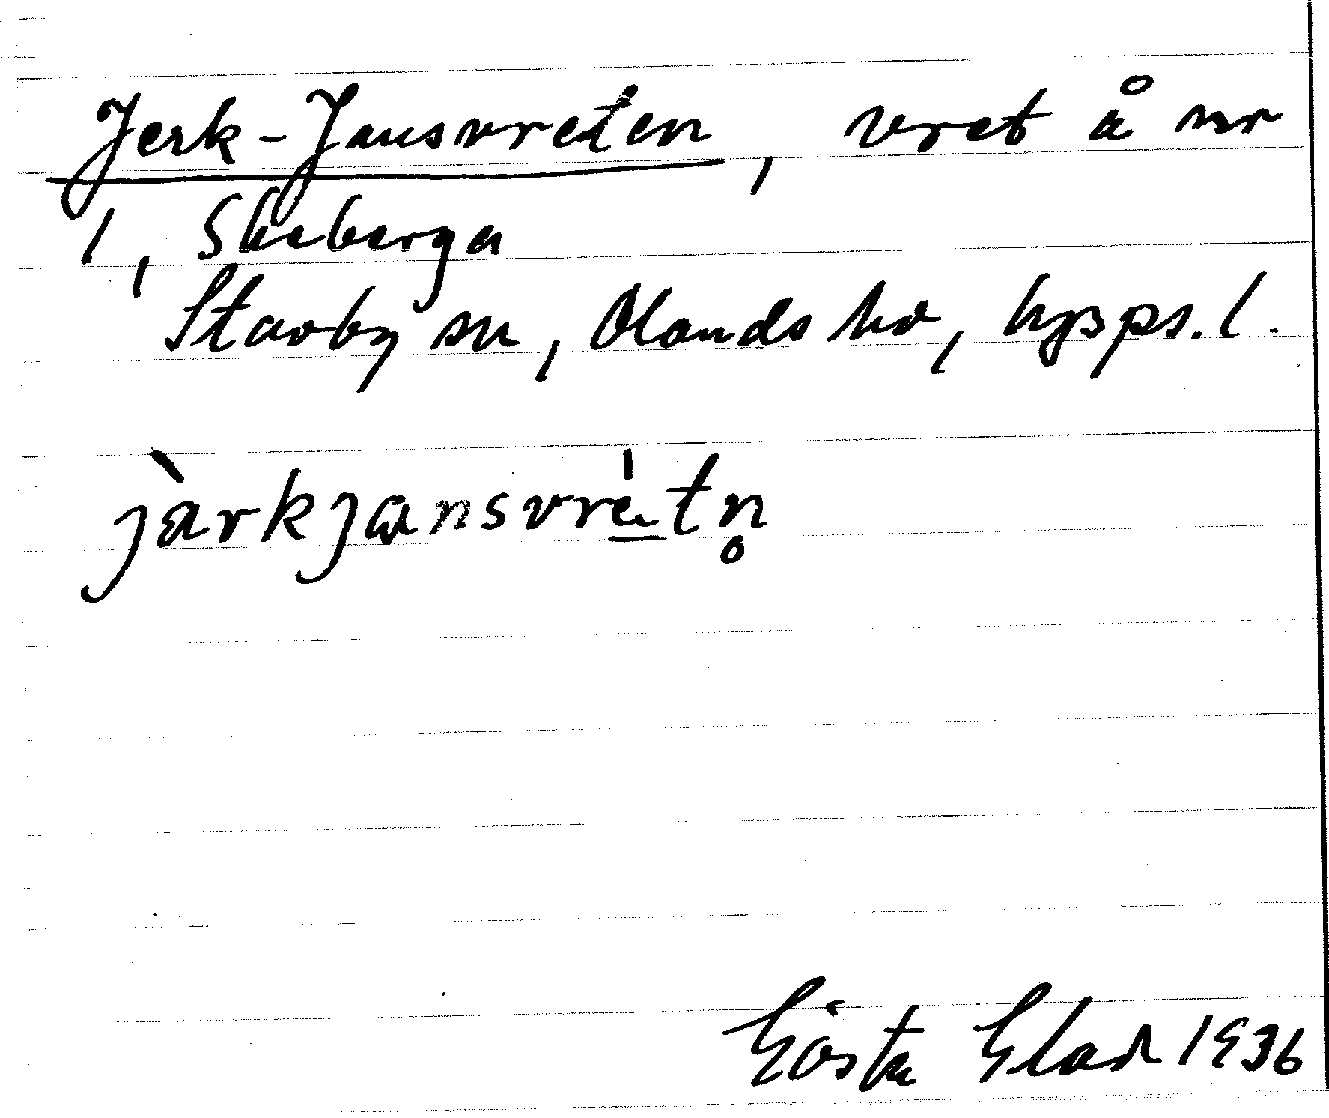 Jerk-Jansvreten, vret å nr
1, Skeberga
Stavby sn, Olands hd, Upps. l.
jàrkjansvrétn̥
Gösta Elad 1936